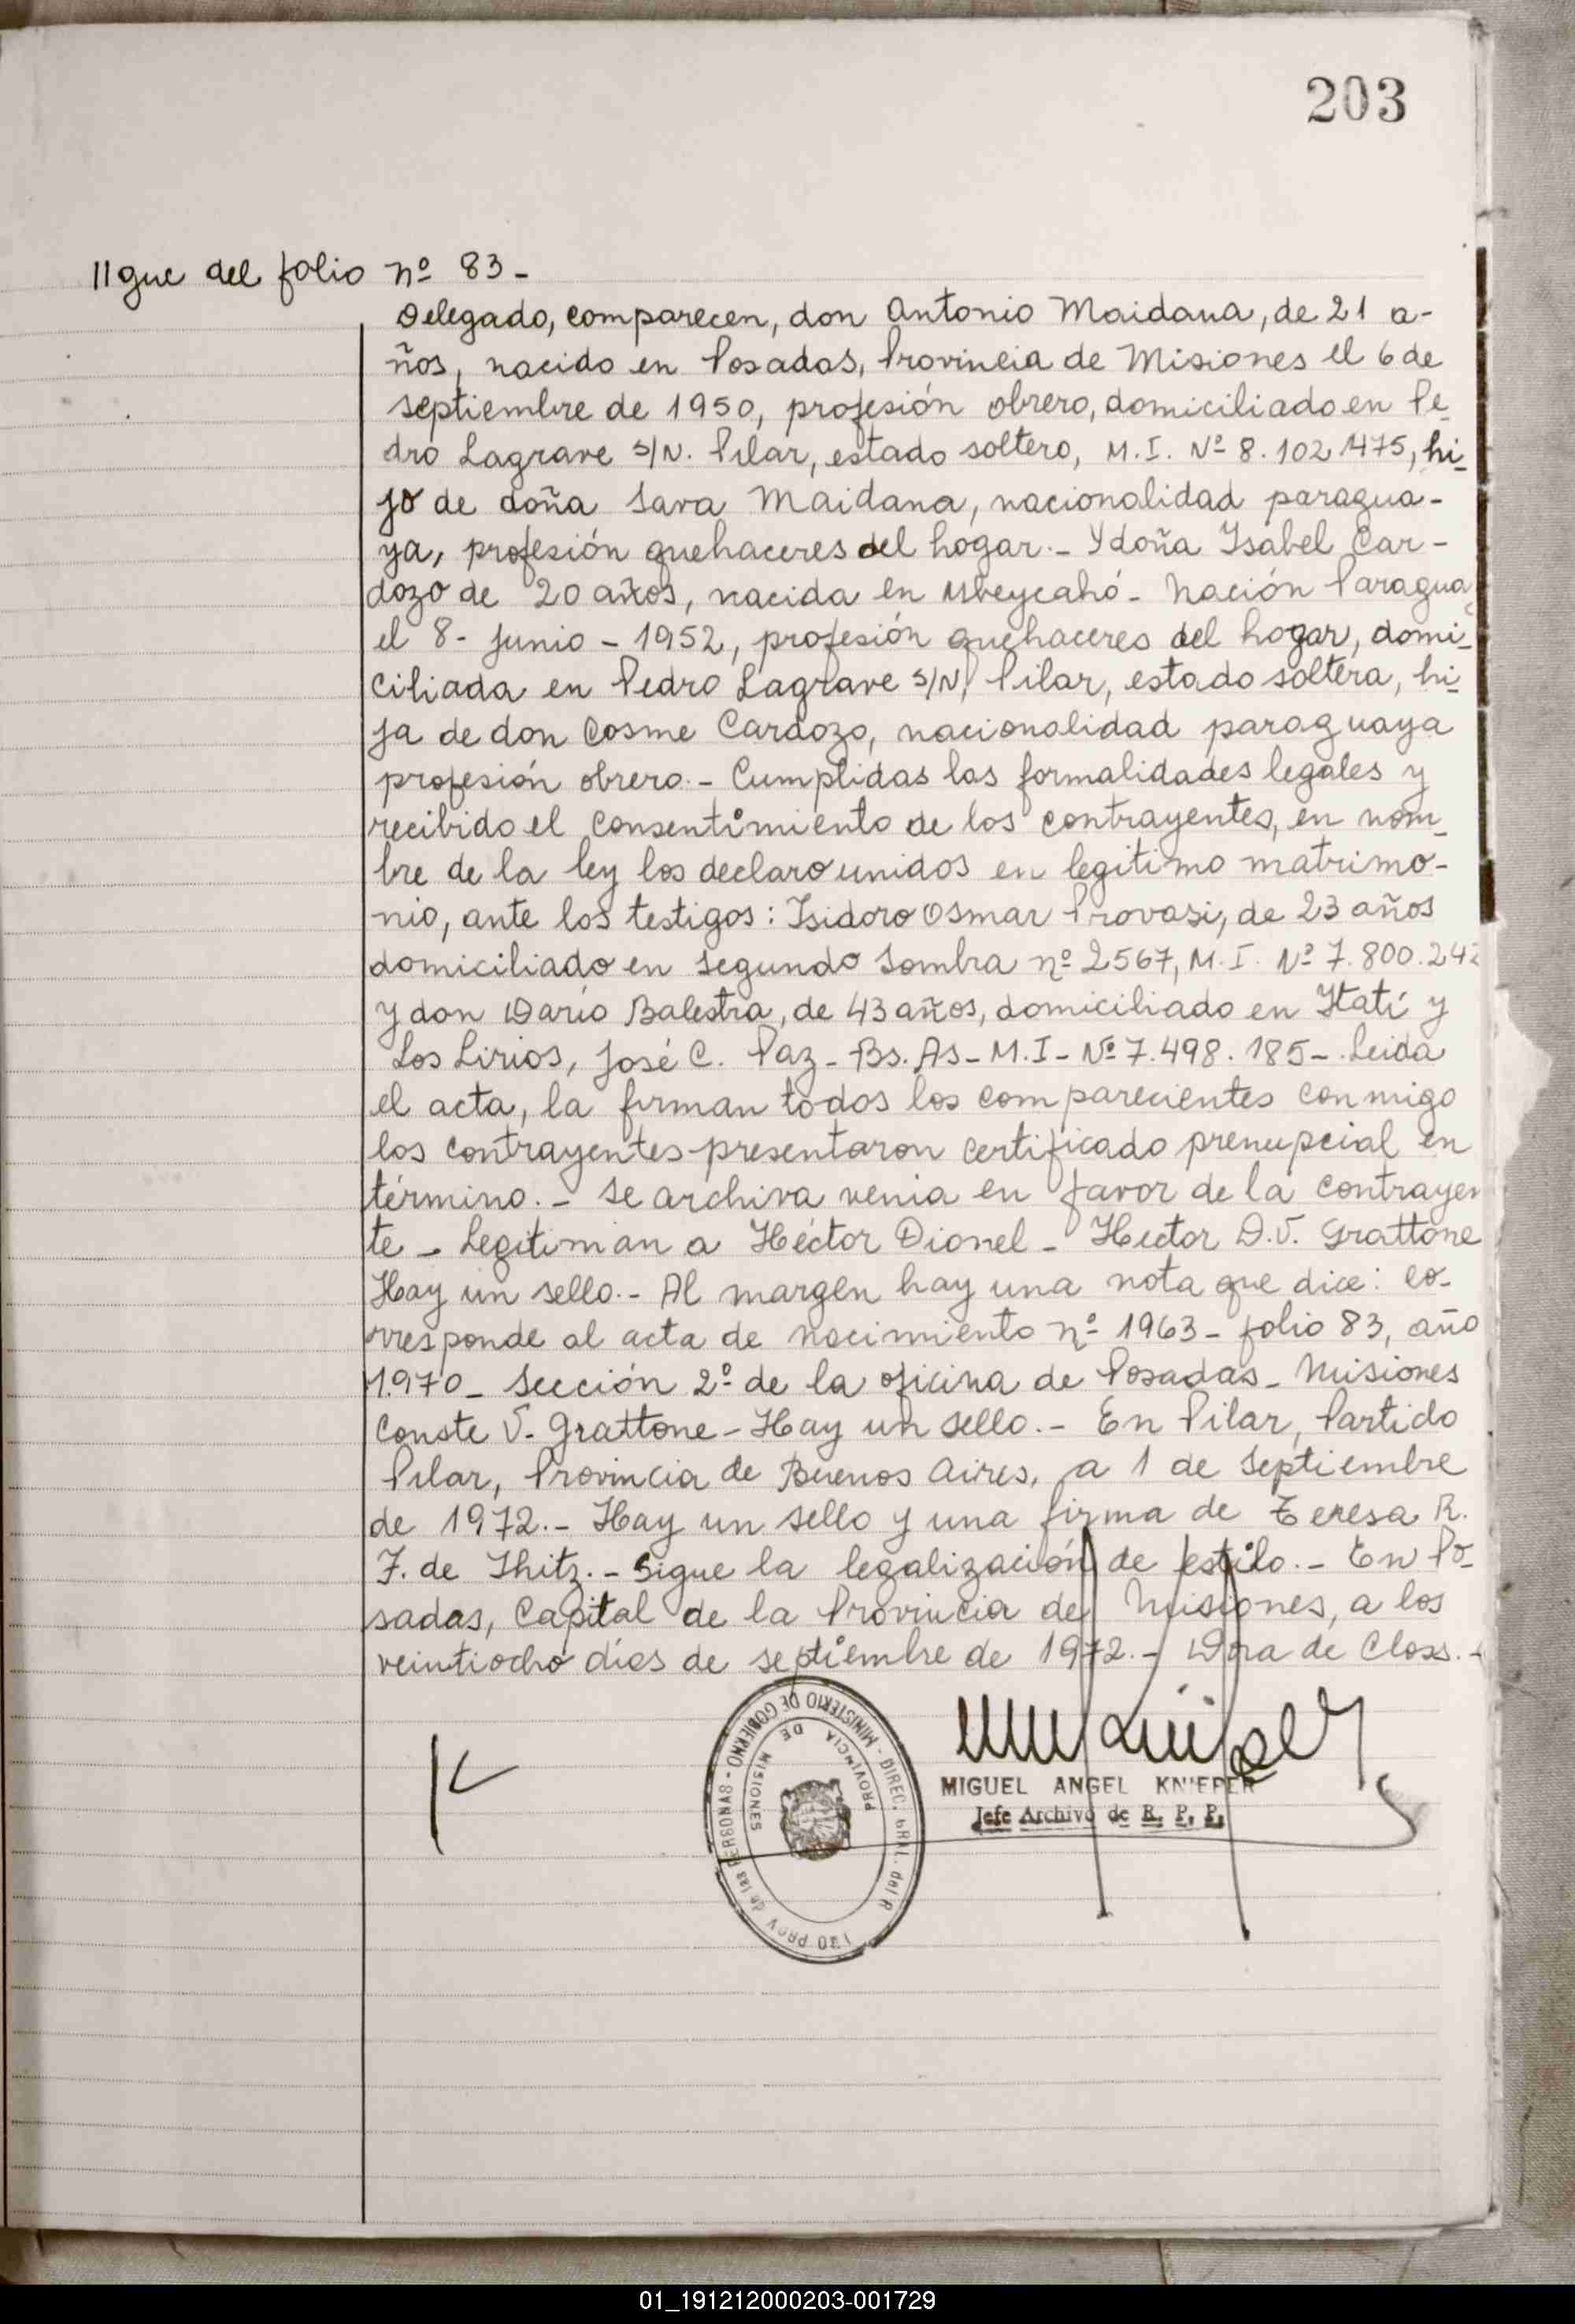 203
//gue del folio nº 83-
Delegado, comparecen, don Antonio Maidana, de 21 a-
ños, nacido en Posadas, Provincia de Misiones el 6 de
septiembre de 1950, profesión obrero, domiciliado en Pe-
dro Lagrave s/N. Pilar, estado soltero, M.I. Nº 8.102.475, hi-
jo de doña Sara Maidana, nacionalidad paragua-
ya, profesión quehaceres del hogar.- Y doña Isabel Car-
dozo de 20 años, nacida en Mbeycahó- Nación Paragua
el 8- Junio - 1952, profesión quehaceres del hogar, domi-
ciliada en Pedro Lagrave s/N, Pilar, estado soltera, hi-
ja de don Cosme Cardozo, nacionalidad paraguaya
profesión obrero.- Cumplidas las formalidades legales y
recibido el consentimiento de los contrayentes, en nom-
bre de la ley los declaro unidos en legitimo matrimo-
nio, ante los testigos: Isidoro Osmar Provasi, de 23 años
domiciliado en Segundo Sombra nº 2567, M.I. Nº 7.800.242
y don Dario Balestra, de 43 años, domiciliado en Itatí y
Los Lirios, José C. Paz- Bs. As- M.I- Nº 7.498.185-. Leida
el acta, la firman todos los comparecientes conmigo
los contrayentes presentaron certificado prenupcial en
término.- se archiva venia en favor de la contrayen
te - Legitiman a Héctor Dionel - Hector D.V. Grattone
Hay un sello.- Al margen hay una nota que dice: co-
rresponde al acta de nacimiento nº 1963- folio 83, año
1.970- Sección 2º de la oficina de Posadas- Misiones
Conste V. Grattone- Hay un sello.- En Pilar, Partido
Pilar, Provincia de Buenos Aires, a 1 de Septiembre
de 1972.- Hay un sello y una firma de Teresa R.
F. de Ihitz.- Sigue la legalización de estilo.- En Po-
sadas, Capital de la Provincia de Misiones, a los
veintiocho dias de septiembre de 1972.- Dora de Closs.-
MINISTERIO DE GOBIERNO - DIREC. GRAL. del R
PROV de las PERSONAS
PROVINCIA DE MISIONES
MIGUEL ANGEL KNIEPER
Jefe Archivo de R. P. P.
01_191212000203-001729